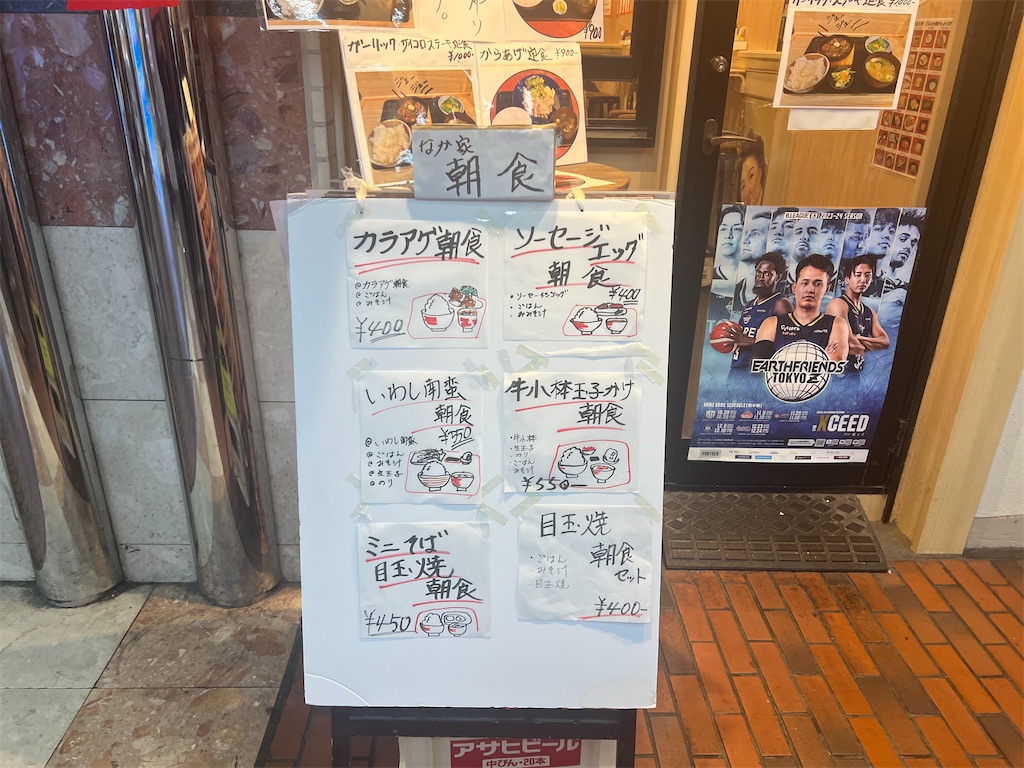 ガーリックサイコロステーキ定食
¥1000-
からあげ定食 ¥900-
なか家
朝食
カラアゲ朝食
@カラアゲ朝食
@ごはん
@みそ汁
¥400
ソーセージ
エッグ
朝食
・ソーセージエッグ
・ごはん
・みそ汁
¥400
いわし南蛮
朝食
¥550
@いわし南蛮
@ごはん
@みそ汁
@生玉子
@のり
牛小鉢玉子かけ
朝食
・牛小鉢
・生玉子
・のり
・ごはん
・みそ汁
¥550
ミニそば
目玉焼
朝食
¥450
目玉焼
朝食
セット
・ごはん
・みそ汁
・目玉焼
¥400-
アサヒビール
中びん・20本
B.LEAGUE 2023-24 SEASON
EARTHFRIENDS
TOKYO Z
HOME GAME SCHEDULE
XCEED
PARTNER